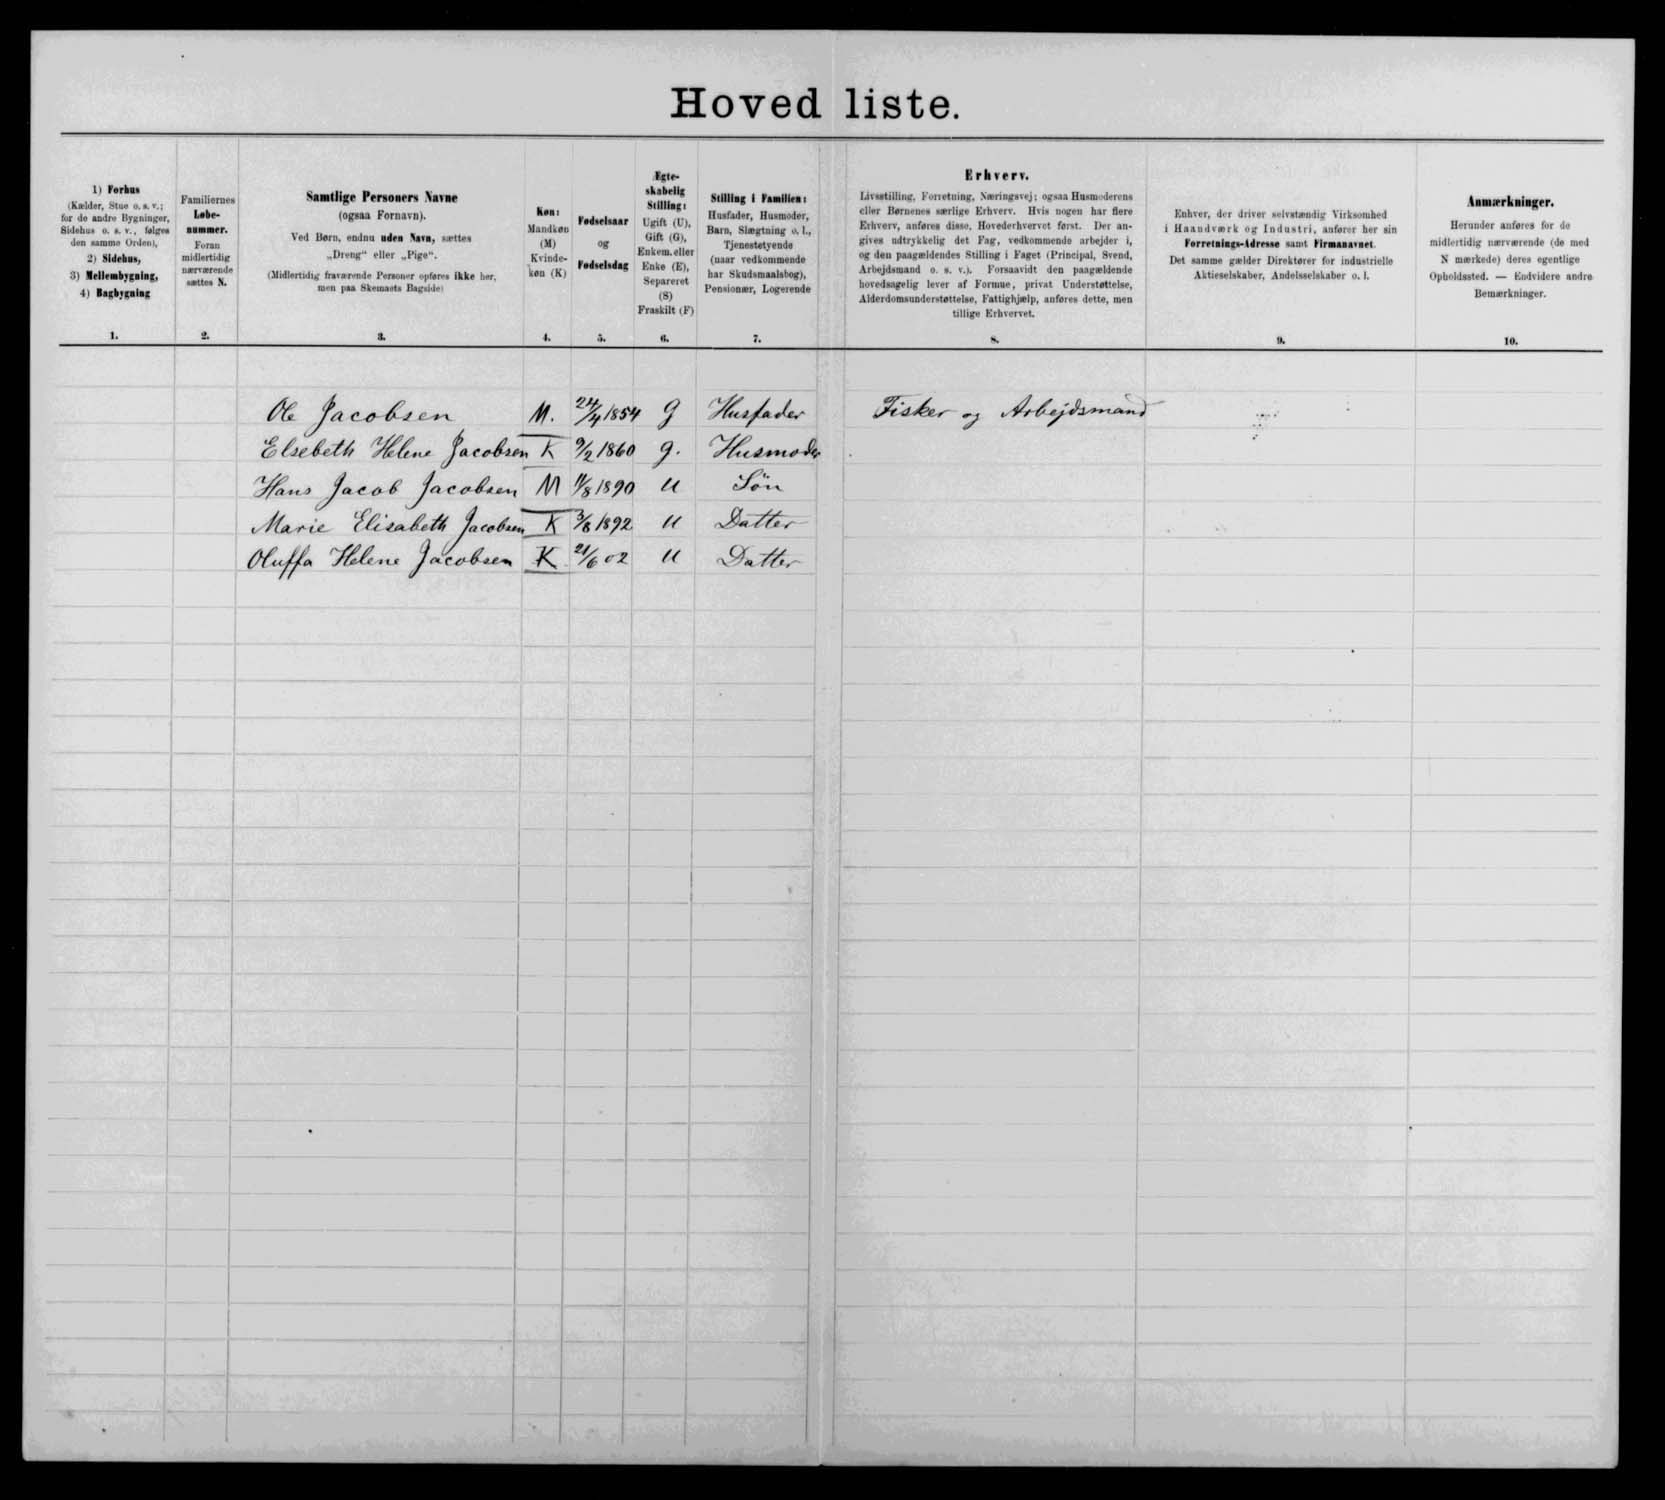 Hovedliste.
1) Forhus
(Kælder, Stue o. s. v.;
for de andre Bygninger,
Sidehus o. s. v., følges
den samme Orden),
2) Sidehus,
3) Mellembygning,
4) Bagbygning
1.
Familiernes
Løbe-
nummer.
Foran
midlertidig
nærværende
sættes N.
2.
Samtlige Personers Navne
(ogsaa Fornavn).
Ved Børn, endnu uden Navn, sættes
„Dreng“ eller „Pige“.
(Midlertidig fraværende Personer opføres ikke her,
men paa Skemaets Bagside)
3.
Køn:
Mandkøn
(M)
Kvinde-
køn (K)
4.
Fødselsaar
og
Fødselsdag
5.
Ægte-
skabelig
Stilling:
Ugift (U),
Gift (G),
Enkem. eller
Enke (E),
Separeret
(S)
Fraskilt (F)
6.
Stilling i Familien:
Husfader, Husmoder,
Barn, Slægtning o. l.,
Tjenestetyende
(naar vedkommende
har Skudsmaalsbog),
Pensionær, Logerende
7.
Erhverv.
Livsstilling, Forretning, Næringsvej; ogsaa Husmoderens
eller Børnenes særlige Erhverv. Hvis nogen har flere
Erhverv, anføres disse, Hovederhvervet først. Der an-
gives udtrykkelig det Fag, vedkommende arbejder i,
og den paagældendes Stilling i Faget (Principal, Svend,
Arbejdsmand o. s. v.). Forsaavidt den paagældende
hovedsagelig lever af Formue, privat Understøttelse,
Alderdomsunderstøttelse, Fattighjælp, anføres dette, men
tillige Erhvervet.
8.
Enhver, der driver selvstændig Virksomhed
i Haandværk og Industri, anfører her sin
Forretnings-Adresse samt Firmanavnet.
Det samme gælder Direktører for industrielle
Aktieselskaber, Andelsselskaber o. l.
9.
Anmærkninger.
Herunder anføres for de
midlertidig nærværende (de med
N mærkede) deres egentlige
Opholdssted. — Endvidere andre
Bemærkninger.
10.
Ole Jacobsen M. 24/4 1854 G Husfader Fisker og Arbejdsmand
Elsebeth Helene Jacobsen K 9/2 1860 g. Husmoder
Hans Jacob Jacobsen M 11/8 1890 U Søn
Marie Elisabeth Jacobsen K 3/8 1892 U Datter
Oluffa Helene Jacobsen K 21/6 02 U Datter